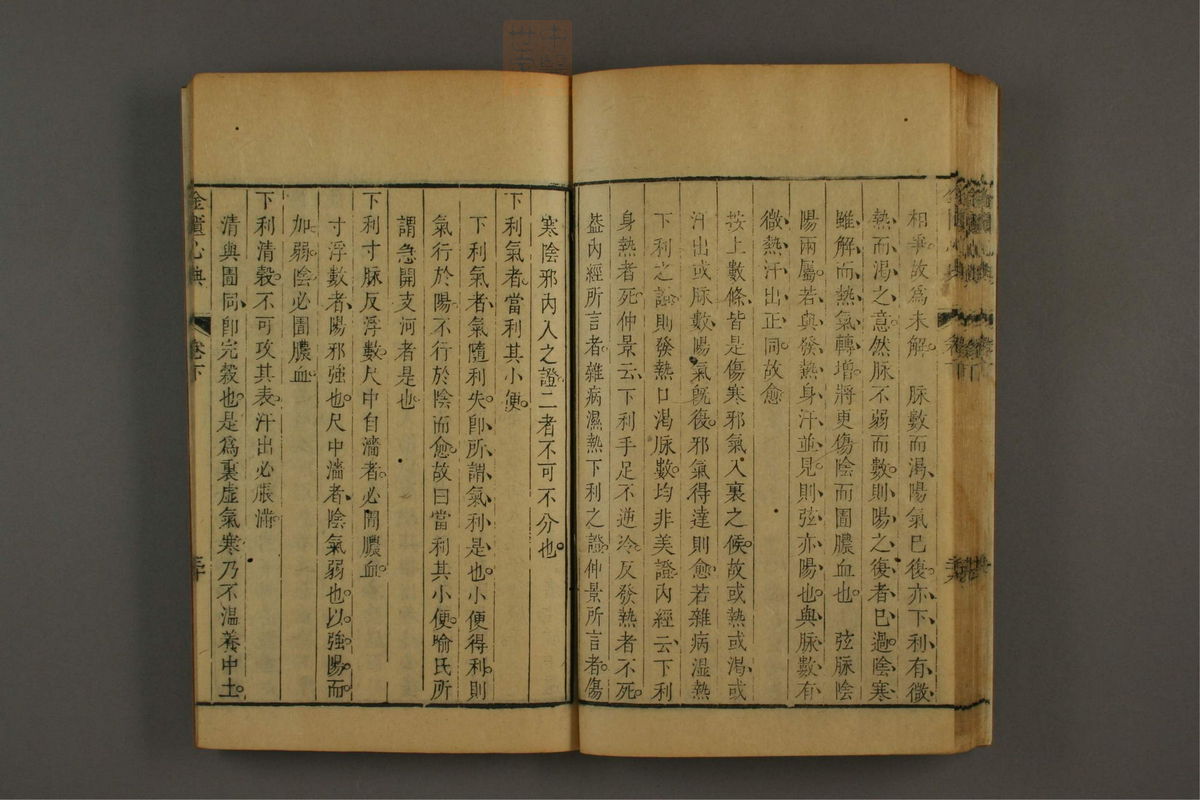 相爭故爲未解　脉數而渴陽氣已復亦下利有微
熱而渴之意然脉不弱而數則陽之復者已過陰寒
雖解而熱氣轉增將更傷陰而圊膿血也　弦脉陰
陽兩屬若與發熱身汗並見則弦亦陽也與脉數有
微熱汗出正同故愈
按上數條皆是傷寒邪氣入裏之候故或熱或渴或
汗出或脉數陽氣旣復邪氣得達則愈若雜病濕熱
下利之證則發熱口渴脉數均非美證內經云下利
身熱者死仲景云下利手足不逆冷反發熱者不死
葢內經所言者雜病濕熱下利之證仲景所言者傷
寒陰邪內入之證二者不可不分也
下利氣者當利其小便
下利氣者氣隨利失卽所謂氣利是也小便得利則
氣行於陽不行於陰而愈故曰當利其小便喻氏所
謂急開支河者是也
下利寸脉反浮數尺中自濇者必圊膿血
寸浮數者陽邪強也尺中濇者陰氣弱也以強陽而
加弱陰必圊膿血
下利清穀不可攻其表汗出必脹滿
清與圊同卽完穀也是爲裏虛氣寒乃不溫養中土
金匱心典　卷下　三十